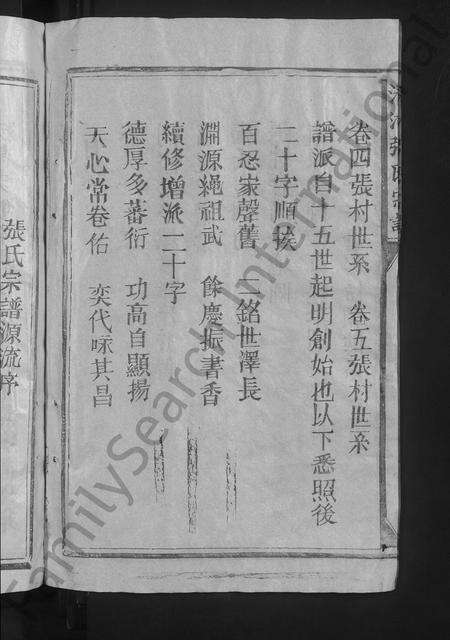 張氏宗譜
卷四張村世系　卷五張村世系
譜派自十五世起明創始也以下悉照後
二十字順挨
百忍家聲舊　二銘世澤長
淵源繩祖武　餘慶振書香
續修增派二十字
德厚多蕃衍　功高自顯揚
天心常眷佑　奕代咏其昌
張氏宗譜源流序
FamilySearch International
FamilySearch International